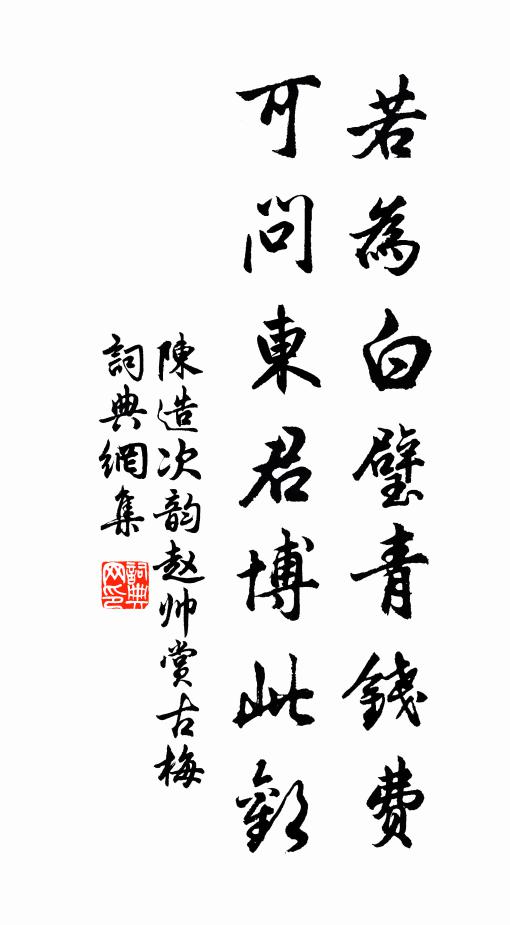 若為白璧青錢費
可問東君博此歡
陳造次韵赵帅赏古梅
詞典網集
詞典
网印